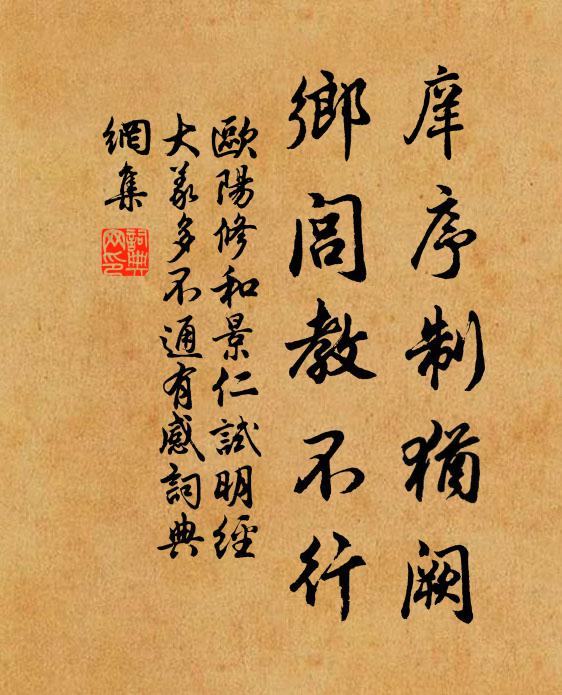 庠序制猶闕
鄉閭教不行
歐陽修和景仁試明經
大義多不通有感詞典
網集
詞典網印